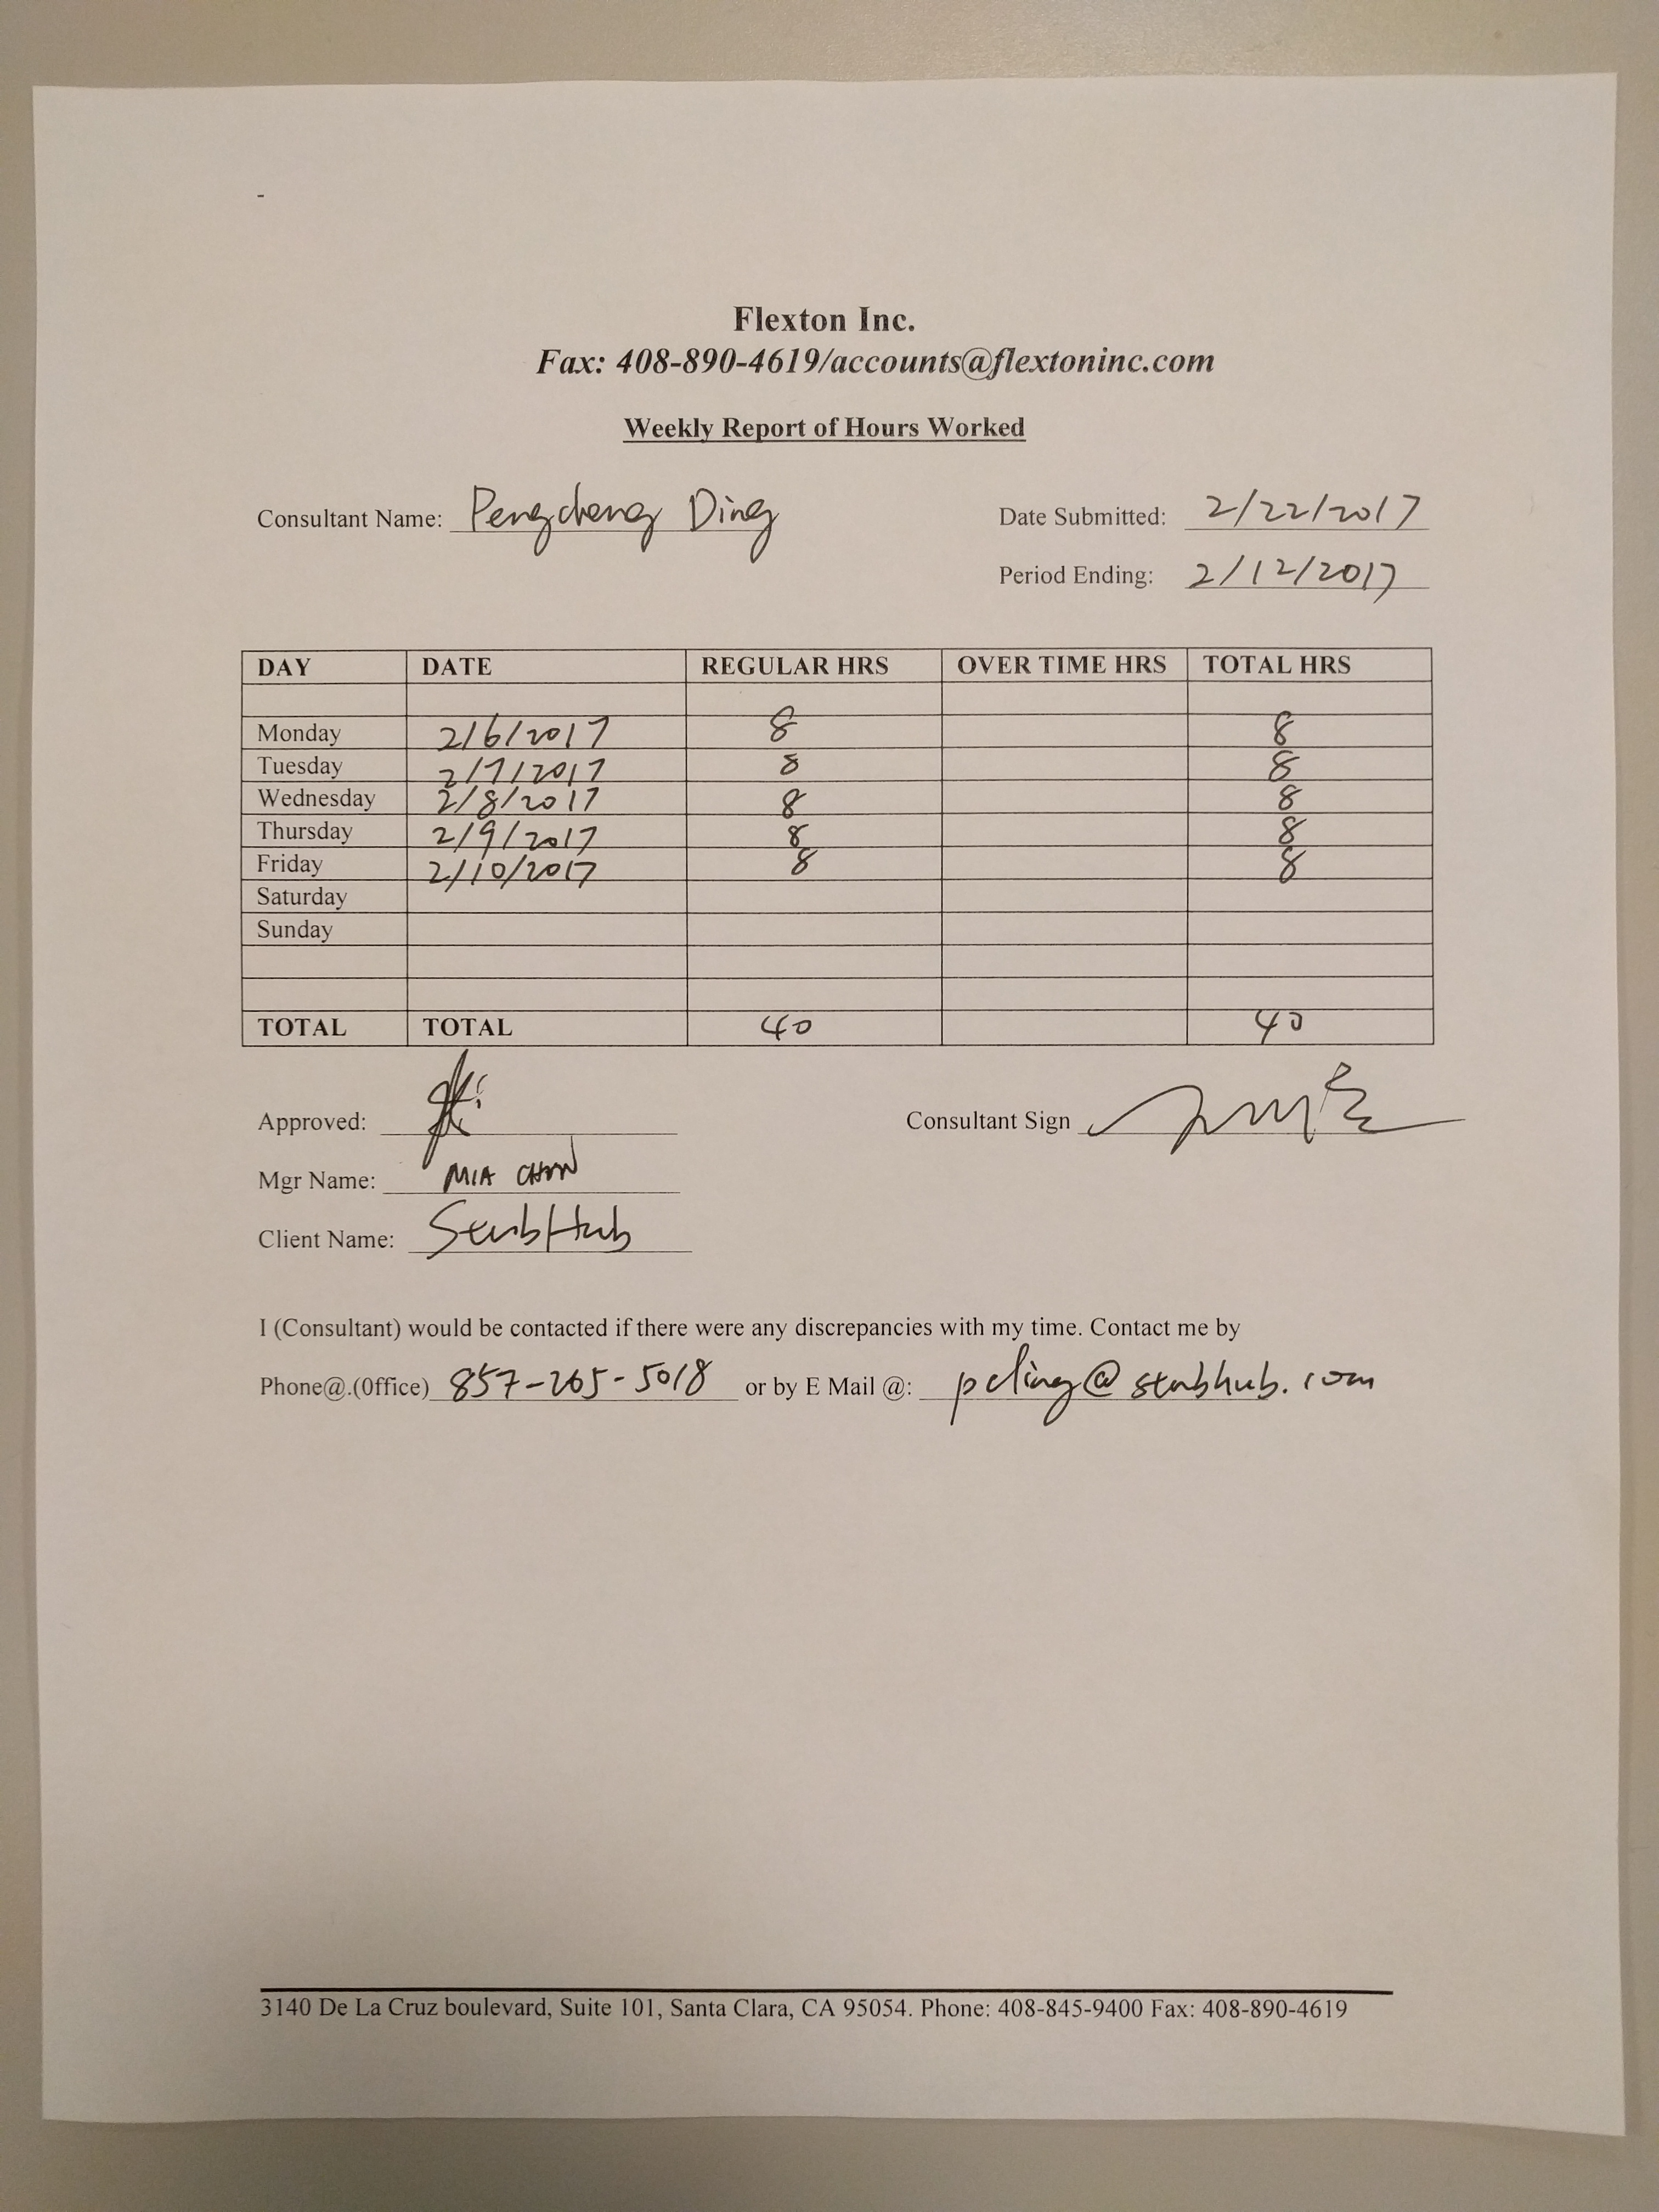 -
Flexton Inc.
Fax: 408-890-4619/accounts@flextoninc.com
Weekly Report of Hours Worked
Consultant Name: Pengcheng Ding Date Submitted: 2/22/2017
Period Ending: 2/12/2017
DAY DATE REGULAR HRS OVER TIME HRS TOTAL HRS
Monday 2/6/2017 8 8
Tuesday 2/7/2017 8 8
Wednesday 2/8/2017 8 8
Thursday 2/9/2017 8 8
Friday 2/10/2017 8 8
Saturday
Sunday
TOTAL TOTAL 40 40
Approved: Consultant Sign
Mgr Name: MIA
Client Name: StubHub
I (Consultant) would be contacted if there were any discrepancies with my time. Contact me by
Phone@.(0ffice) 857-265-5018 or by E Mail @: pcding@stubhub.com
3140 De La Cruz boulevard, Suite 101, Santa Clara, CA 95054. Phone: 408-845-9400 Fax: 408-890-4619